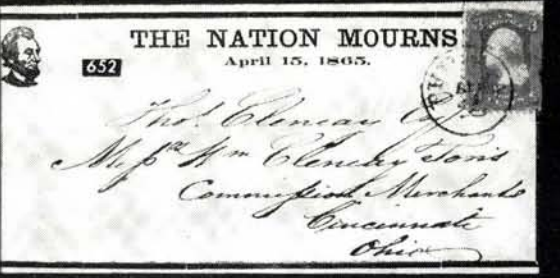 THE NATION MOURNS
April 15, 1865.
652
Thos. Clencay
Wm Clencay Sons
Commission Merchants
Cincinnati
Ohio